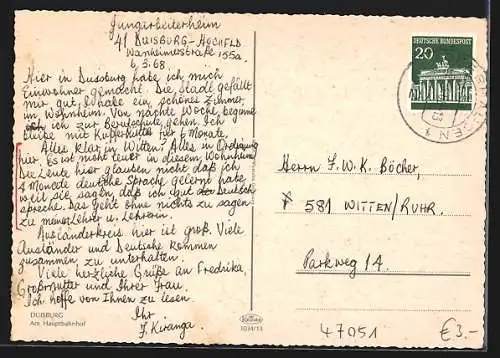 Jungarbeiterheim
41 DUISBURG-HOCHFELD
Wanheimerstraße 155a
6, 3. 68
Hier in Duisburg habe ich mich
Einwohner gemacht. Die Stadt gefällt
mir gut, habe ein schönes Zimmer,
im Wohnheim. Von nächte Woche, beginne
ich zur Berufschule gehen. Ich
bleibe mit Kupferhütte für 6 Monate.
Alles klar in Witten? Alles in Ordnung
hier. Es ist nicht teuer in diesem Wohnheim.
Die Leute hier glauben nicht daß ich
4 Monate deutsche Sprache gelernt habe
weil sie sagen daß ich gut Deutsch
spreche. Das geht ohne nichts zu sagen
zu meiner Lehrer u. Lehrerin.
Ausländerkreis hier ist groß. Viele
Ausländer und Deutsche kommen
zusammen zu unterhalten.
Viele herzliche Grüße an Fredrika,
Großmutter und Ihrer Frau.
Ich hoffe von Ihnen zu lesen.
Ihr
J. Kiranga.
DUISBURG
Am Hauptbahnhof
1034/13
DEUTSCHE BUNDESPOST
20
Herrn F. W. K. Böcher,
581 WITTEN/RUHR.
Parkweg 14.
47051
€3.-